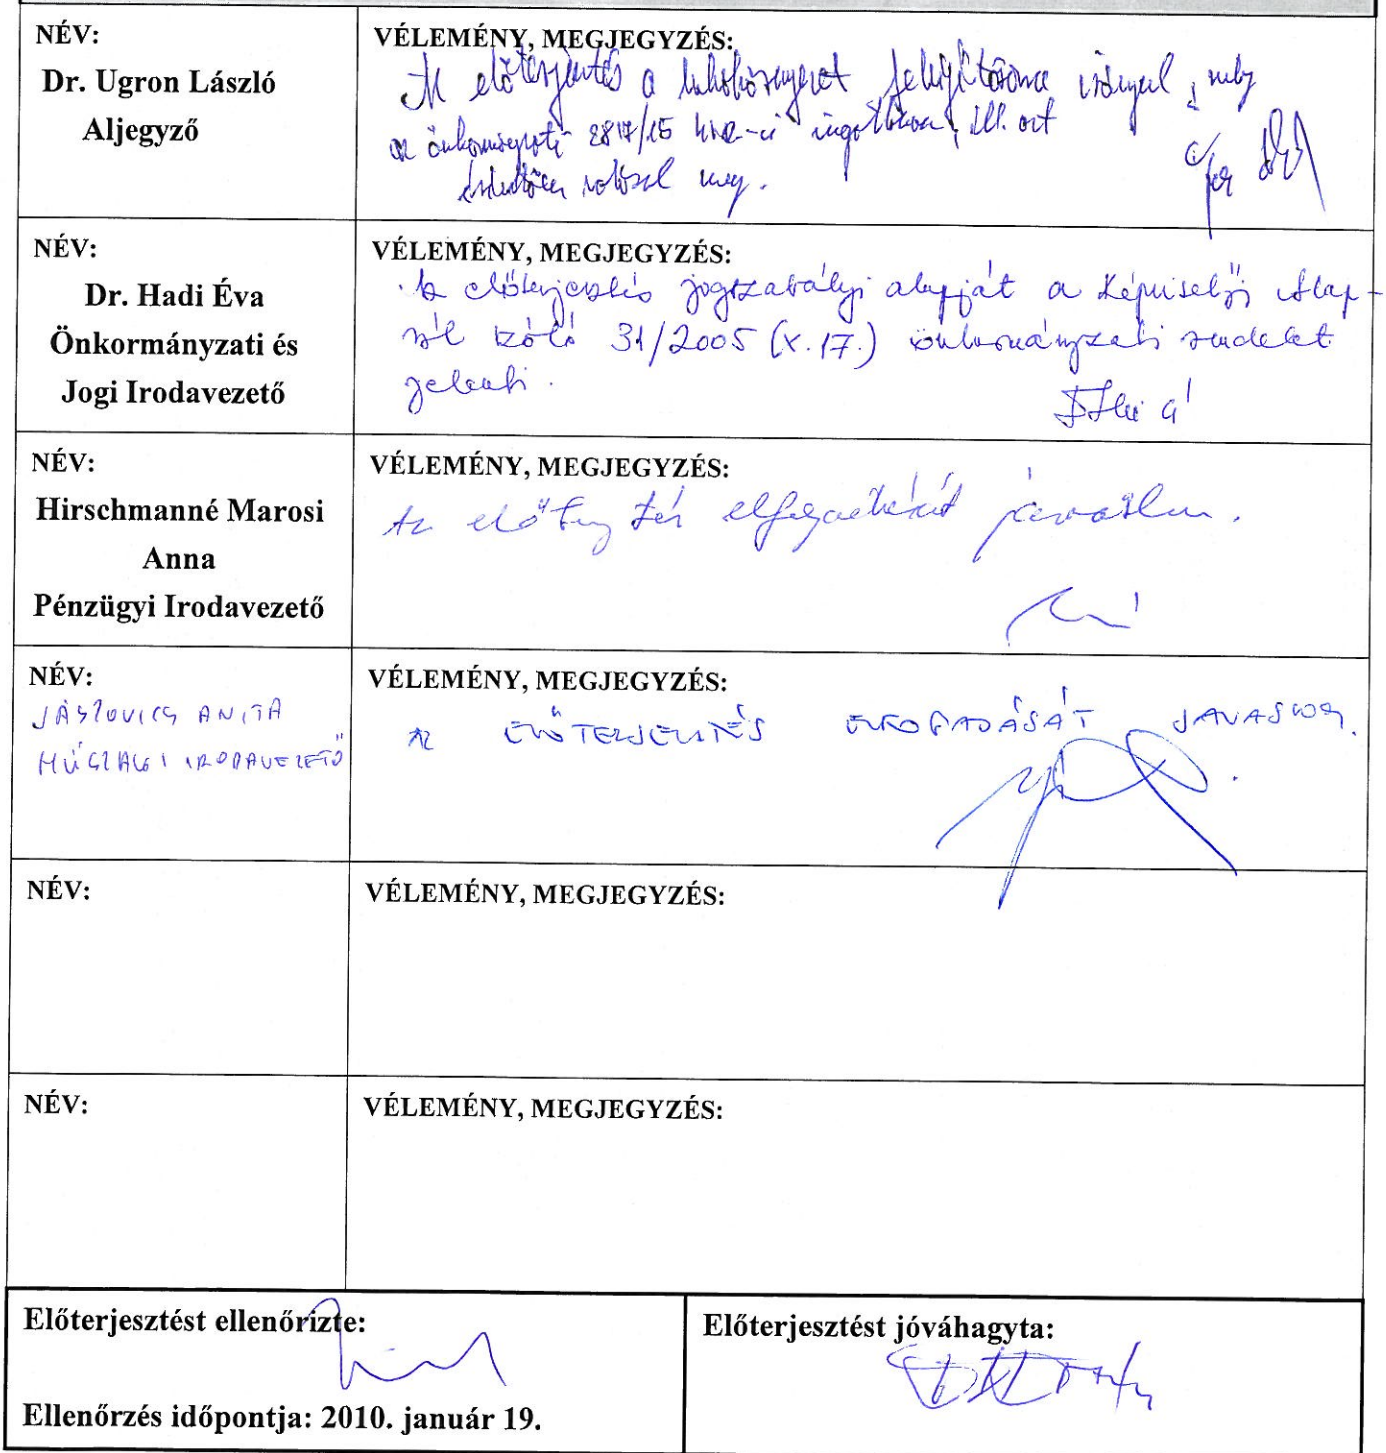 NÉV:
Dr. Ugron László
Aljegyző
VÉLEMÉNY, MEGJEGYZÉS:
Az előterjesztés a lakókörnyezet felújítására irányul, mely
az önkormányzati 2817/15 hrsz-ú ingatlanon, ill. azt
érintően valósul meg.
NÉV:
Dr. Hadi Éva
Önkormányzati és
Jogi Irodavezető
VÉLEMÉNY, MEGJEGYZÉS:
Az előterjesztés jogszabályi alapját a Képviselői Alap-
ról szóló 31/2005 (X.17.) önkormányzati rendelet
jelenti.
NÉV:
Hirschmanné Marosi
Anna
Pénzügyi Irodavezető
VÉLEMÉNY, MEGJEGYZÉS:
Az előterjesztés elfogadását javaslom.
NÉV:
JÁSZOVICS ANITA
MŰSZAKI IRODAVEZETŐ
VÉLEMÉNY, MEGJEGYZÉS:
AZ ELŐTERJESZTÉS ELFOGADÁSÁT JAVASLOM.
NÉV:
VÉLEMÉNY, MEGJEGYZÉS:
NÉV:
VÉLEMÉNY, MEGJEGYZÉS:
Előterjesztést ellenőrizte:
Ellenőrzés időpontja: 2010. január 19.
Előterjesztést jóváhagyta: